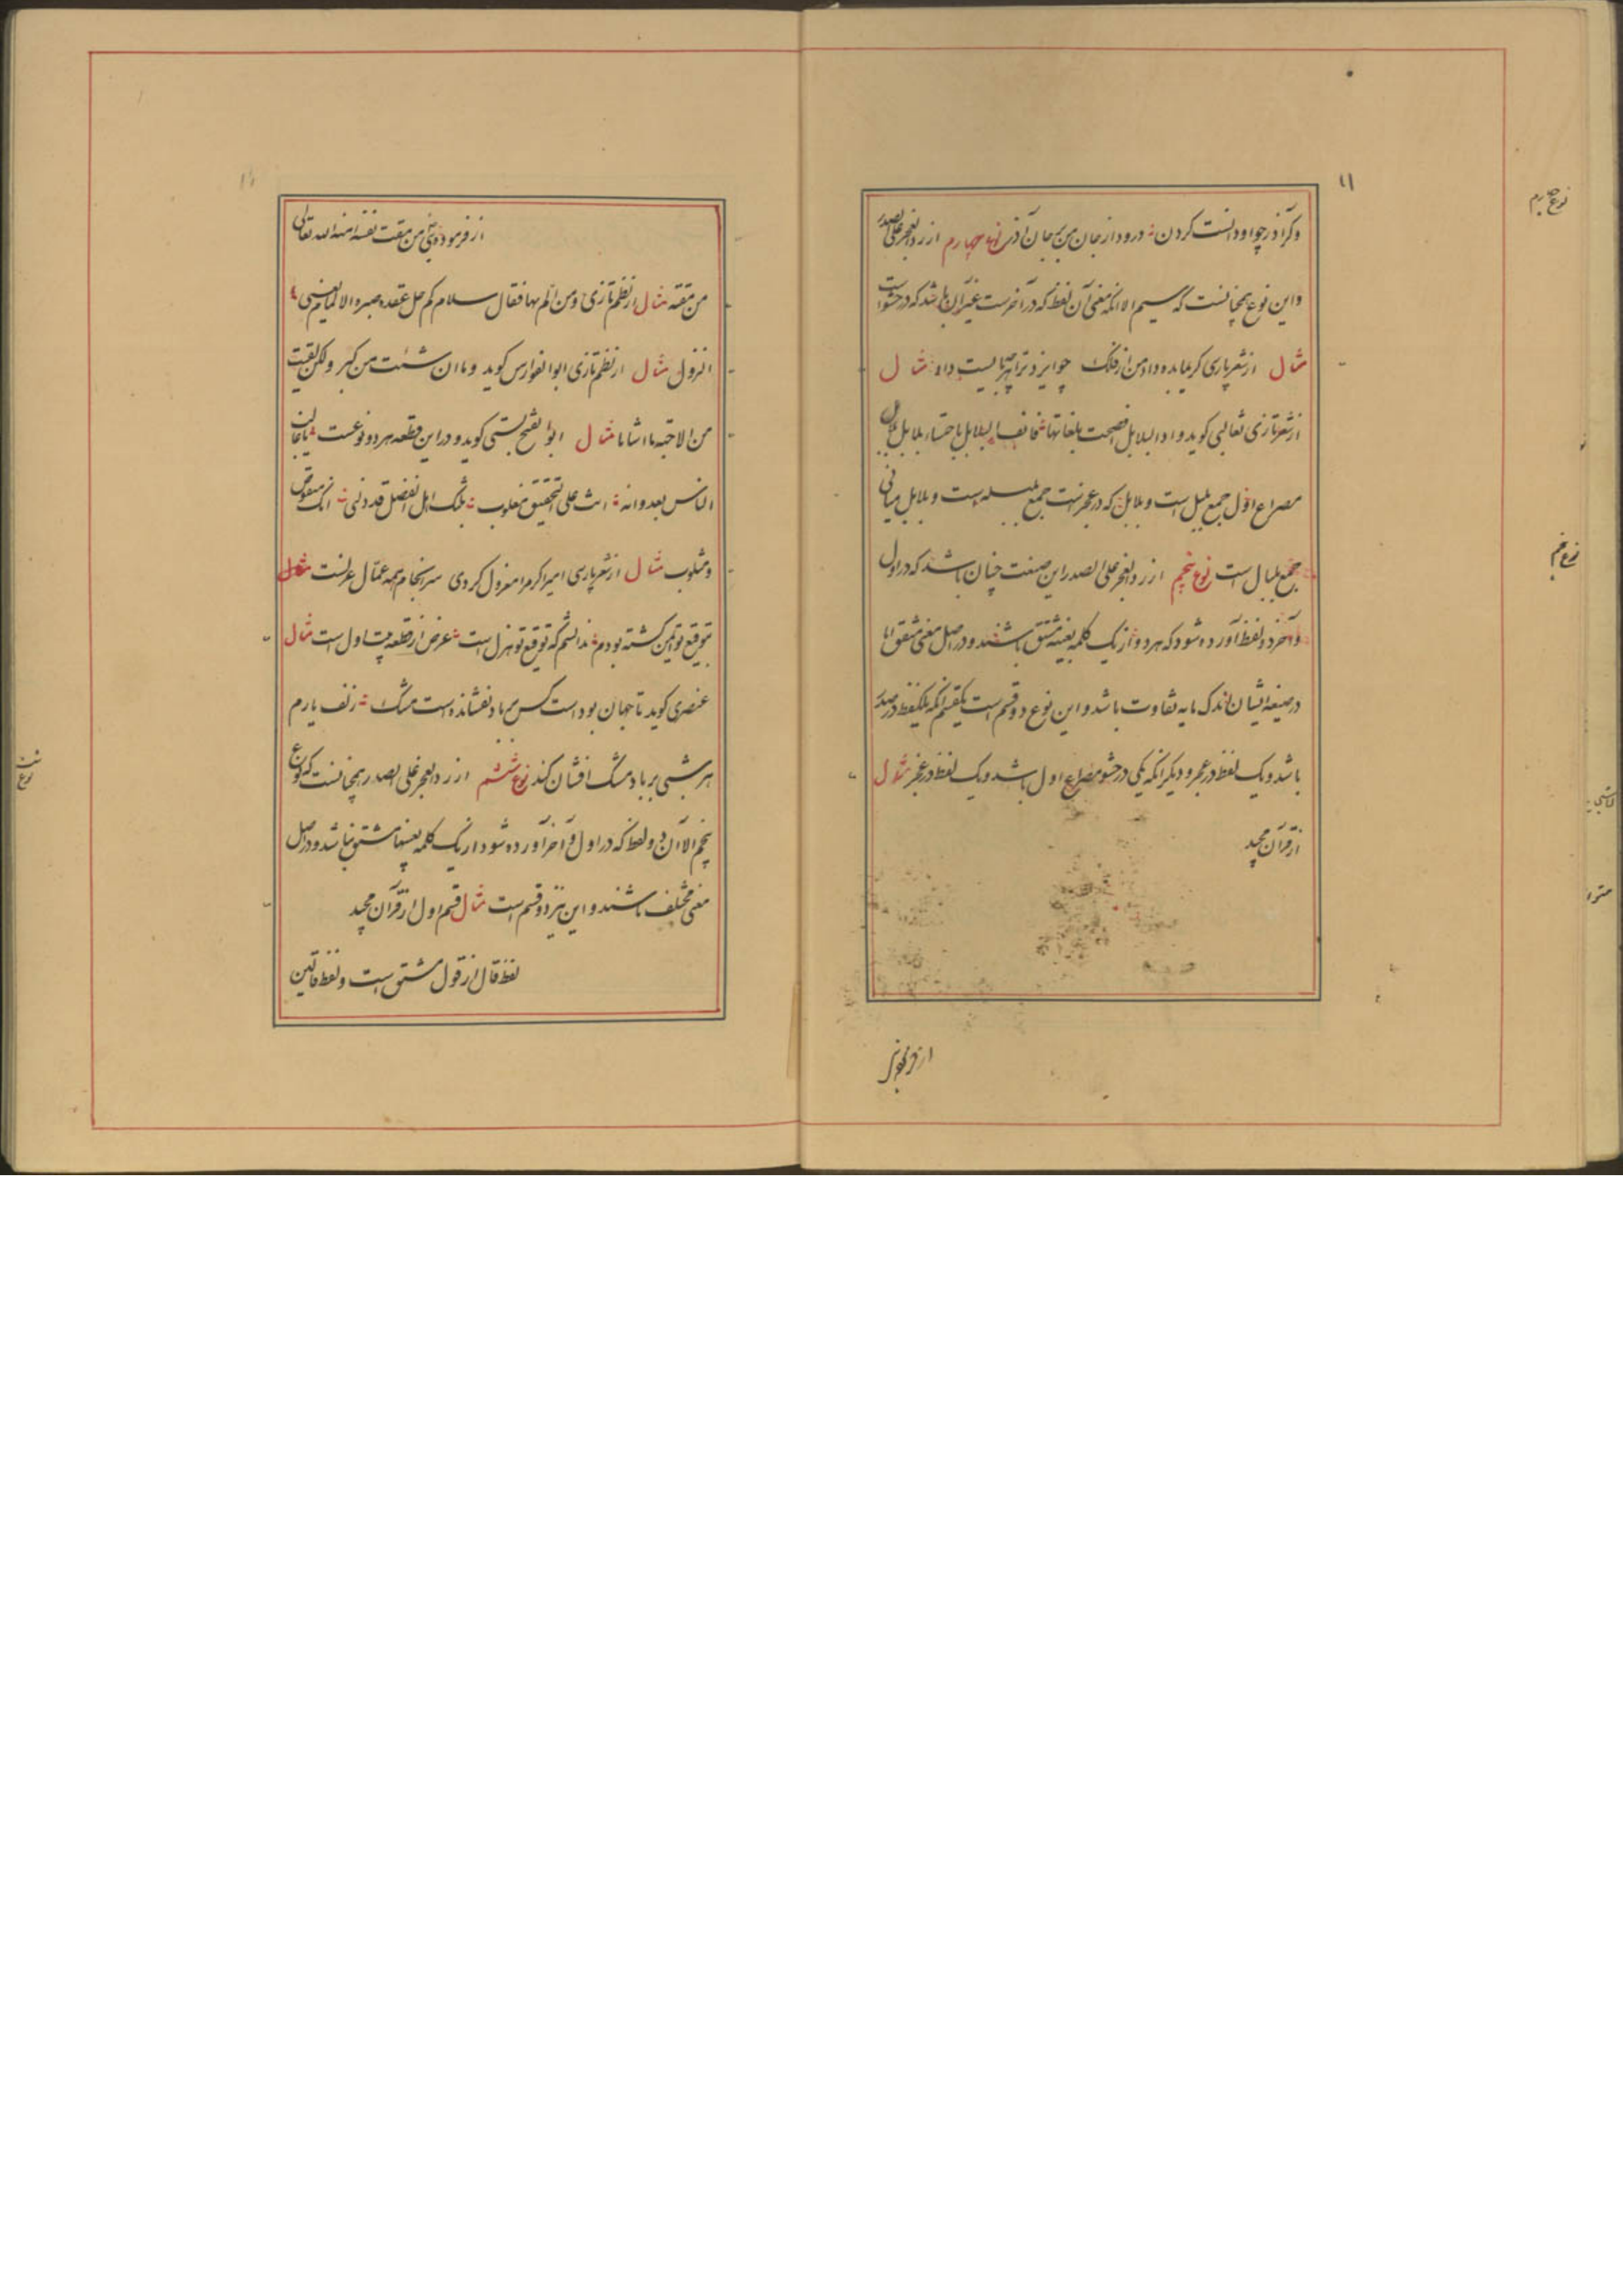 ۱۱
نوع چهارم
وگر آذر چو او دانست کردن درود از جان من بر جان آذر نوع چهارم از رد العجز علی الصدر
واین نوع همچنانست که سیم الا انکه معنی آن لفظ که در آخرست غیر آن باشد که در حشو است
مثال از شعر پارسی داد من از فلک چو ایزد ترا داد مثال
از شعر تازی ثعالبی کوید واذا البلابل افصحت بلغاتها فانف البلابل باحتساء بلابل بلابل
مصراع اول جمع بلبل است و بلابل که در عجزست جمع بلبله است و بلابل میانی
جمع بلبال است نوع پنجم از رد العجز علی الصدر این صنعت چنان باشد که در اول
نوع پنجم
و آخر دو لفظ آورده شود که هر دو از یک کلمه بعینه مشتق باشند و در اصل معنی متفق اما
در صیغه ایشان اندک مایه تفاوت باشد و این نوع دو قسم است یکقسم آنکه یکلفظ در صدر
باشد و یک لفظ در عجز و دیکر انکه یکی در حشو مصراع اول باشد و یک لفظ در عجز مثال
از قرآن مجید
از فرموده نبی
از فرموده نبی من مقت نفسه امنه الله تعالی
من مقته مثال از نظم تازی ومن الم بها فقال سلام کم حل عقده صبره الالمام یعنی
النزول مثال از نظم تازی ابو الفوارس کوید وما ان شئت من کبر ولکن لقیت
من الاحبة ما اشابا مثال ابو الفتح بستی کوید و در این قطعه هر دو نوعست
الناس بعدوانه انت علی التحقیق مغلوب ثلبک اهل الفضل قد دلنی انک منقوص
ومثلوب مثال از شعر پارسی امیرا کر مرا معزول کردی سرانجام همه عمال عزلست مثال
توقیع تو ایمن کشته بودم ندانستم که توقیع تو هزل است غرض از قطعه بیت اول است مثال
عنصری کوید تا جهان بوداست کس بر باد نفشانده است مشک زلف یارم
هر شبی بر باد مشک افشان کند نوع ششم از رد العجز علی الصدر همچنانست که نوع
پنجم الا آن دو لفظ که در اول و آخر آورده شود از یک کلمه بعینها مشتق نباشد و در اصل
معنی مختلف باشند و این نیز دو قسم است مثال قسم اول از قرآن مجید
لفظ قال از قول مشتق است و لفظ قالین